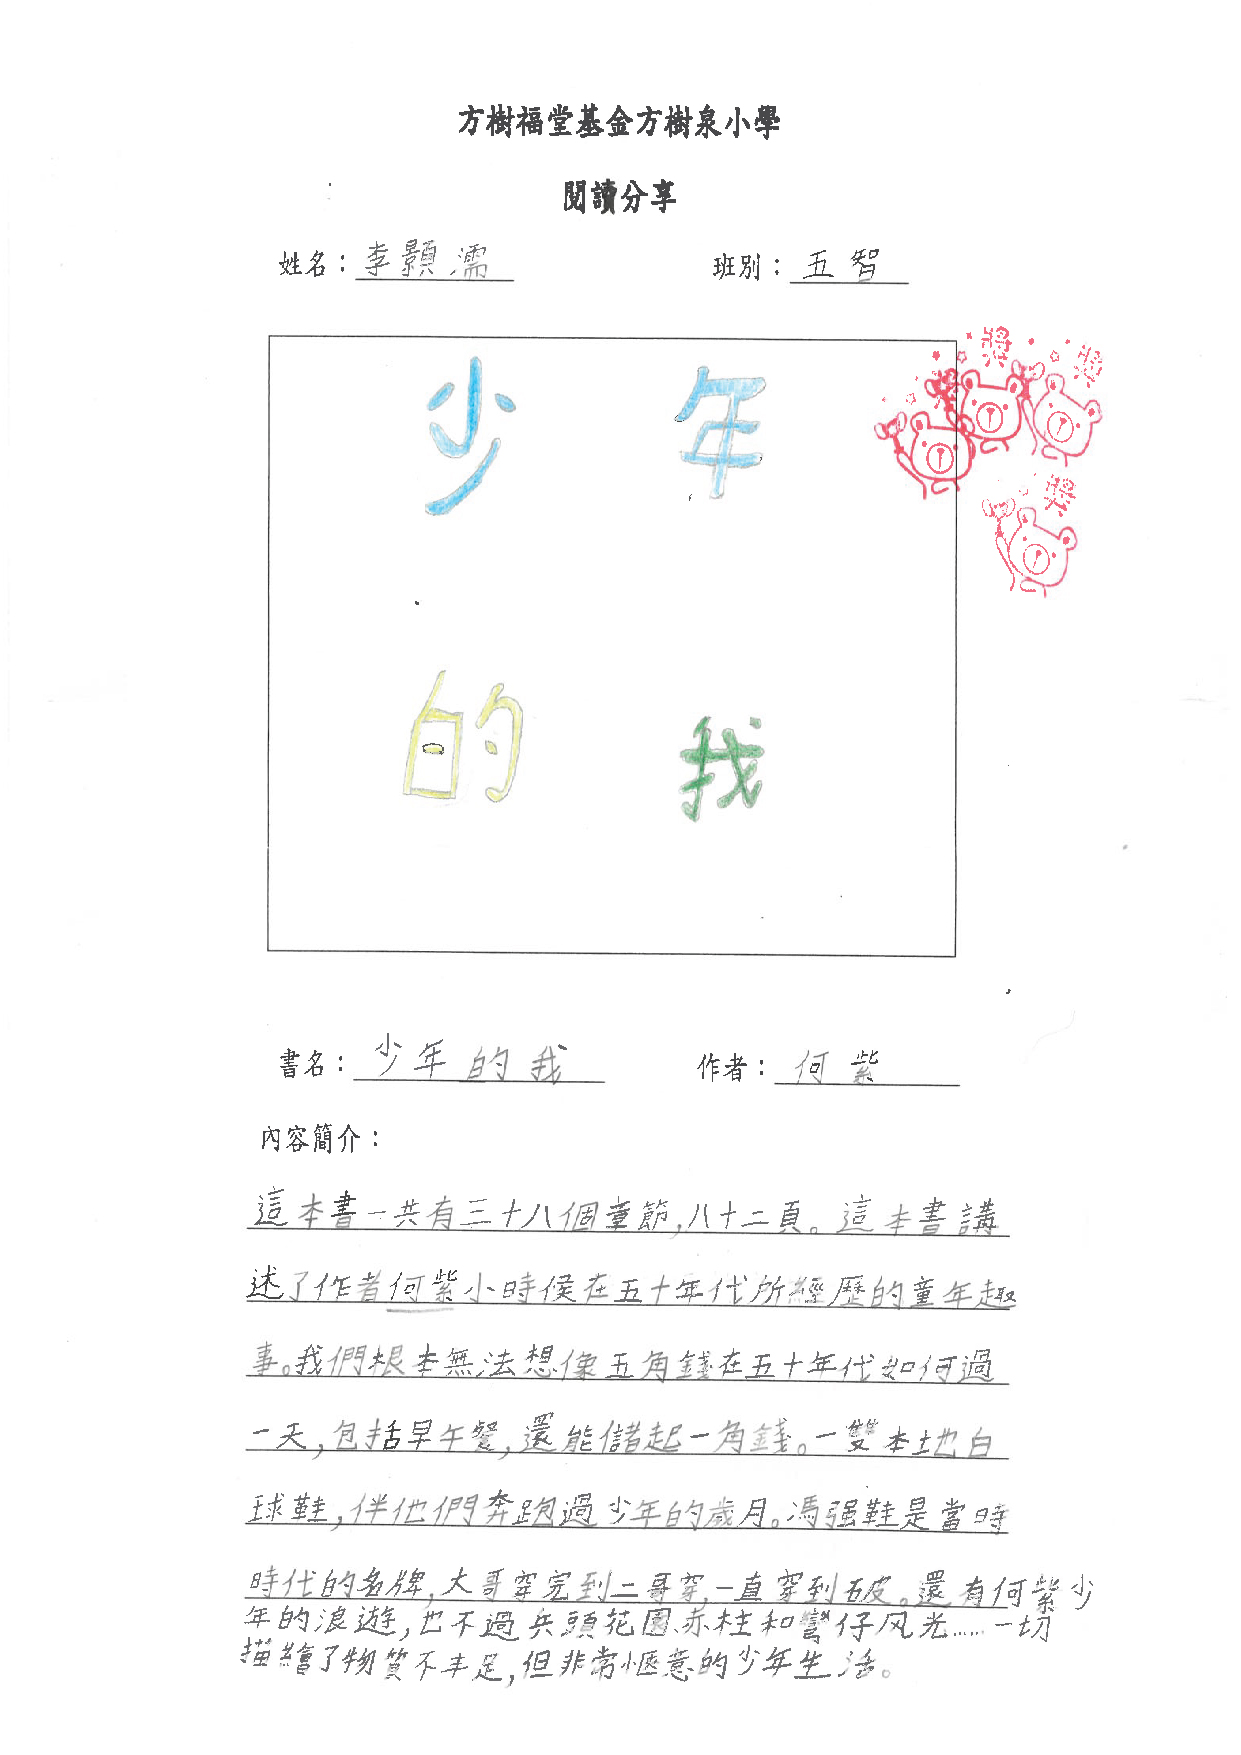 方樹福堂基金方樹泉小學
閱讀分享
姓名：李顥濡 班別：五智
獎 獎
獎
少年
的我
書名：少年的我 作者：何紫
內容簡介：
這本書一共有三十八個章節,八十二頁。這本書講
述了作者何紫小時侯在五十年代所經歷的童年趣
事。我們根本無法想像五角錢在五十年代如何過
一天,包括早午餐,還能儲起一角錢。一雙本地白
球鞋,伴他們奔跑過少年的歲月。馮强鞋是當時
時代的名牌,大哥穿完到二哥穿,一直穿到破。還有何紫少
年的浪遊,也不過兵頭花園、赤柱和彎仔风光……一切
描繪了物質不丰足,但非常愜意的少年生活。